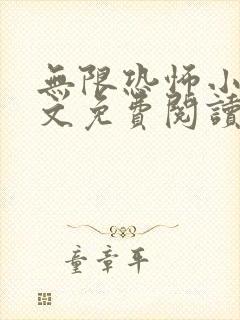 無限恐怖小
文免費閱讀
童章平